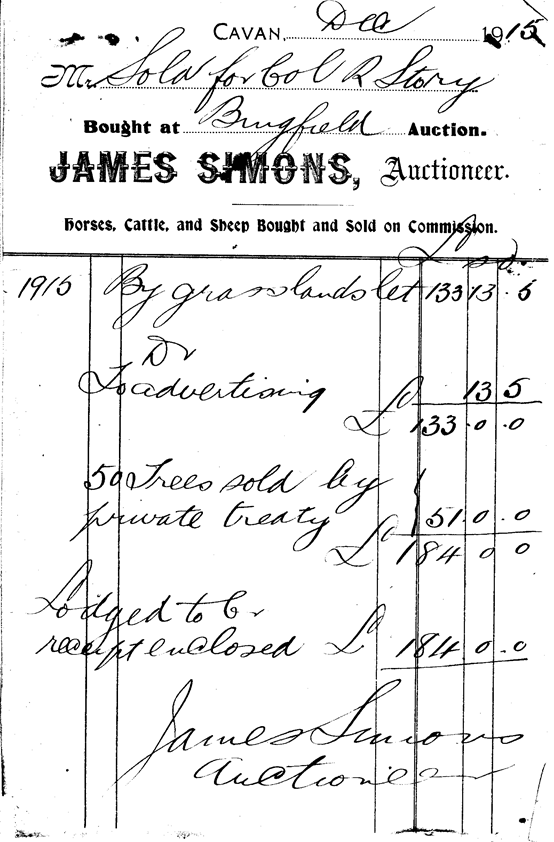 CAVAN, Dec 1915
Mr. Sold for Col R Story
Bought at Bingfield Auction.
JAMES SIMONS, Auctioneer.
Horses, Cattle, and Sheep Bought and Sold on Commission.
£ s d.
1915 By grasslands let 133 13 . 5
Dr
To advertising 13 5
£ 133 . 0 . 0
50 Trees sold by
private treaty } 51 . 0 . 0
£ 184 0 0
Lodged to Cr
receipt enclosed £ 184 . 0 . 0
James Simons
Auctioneer